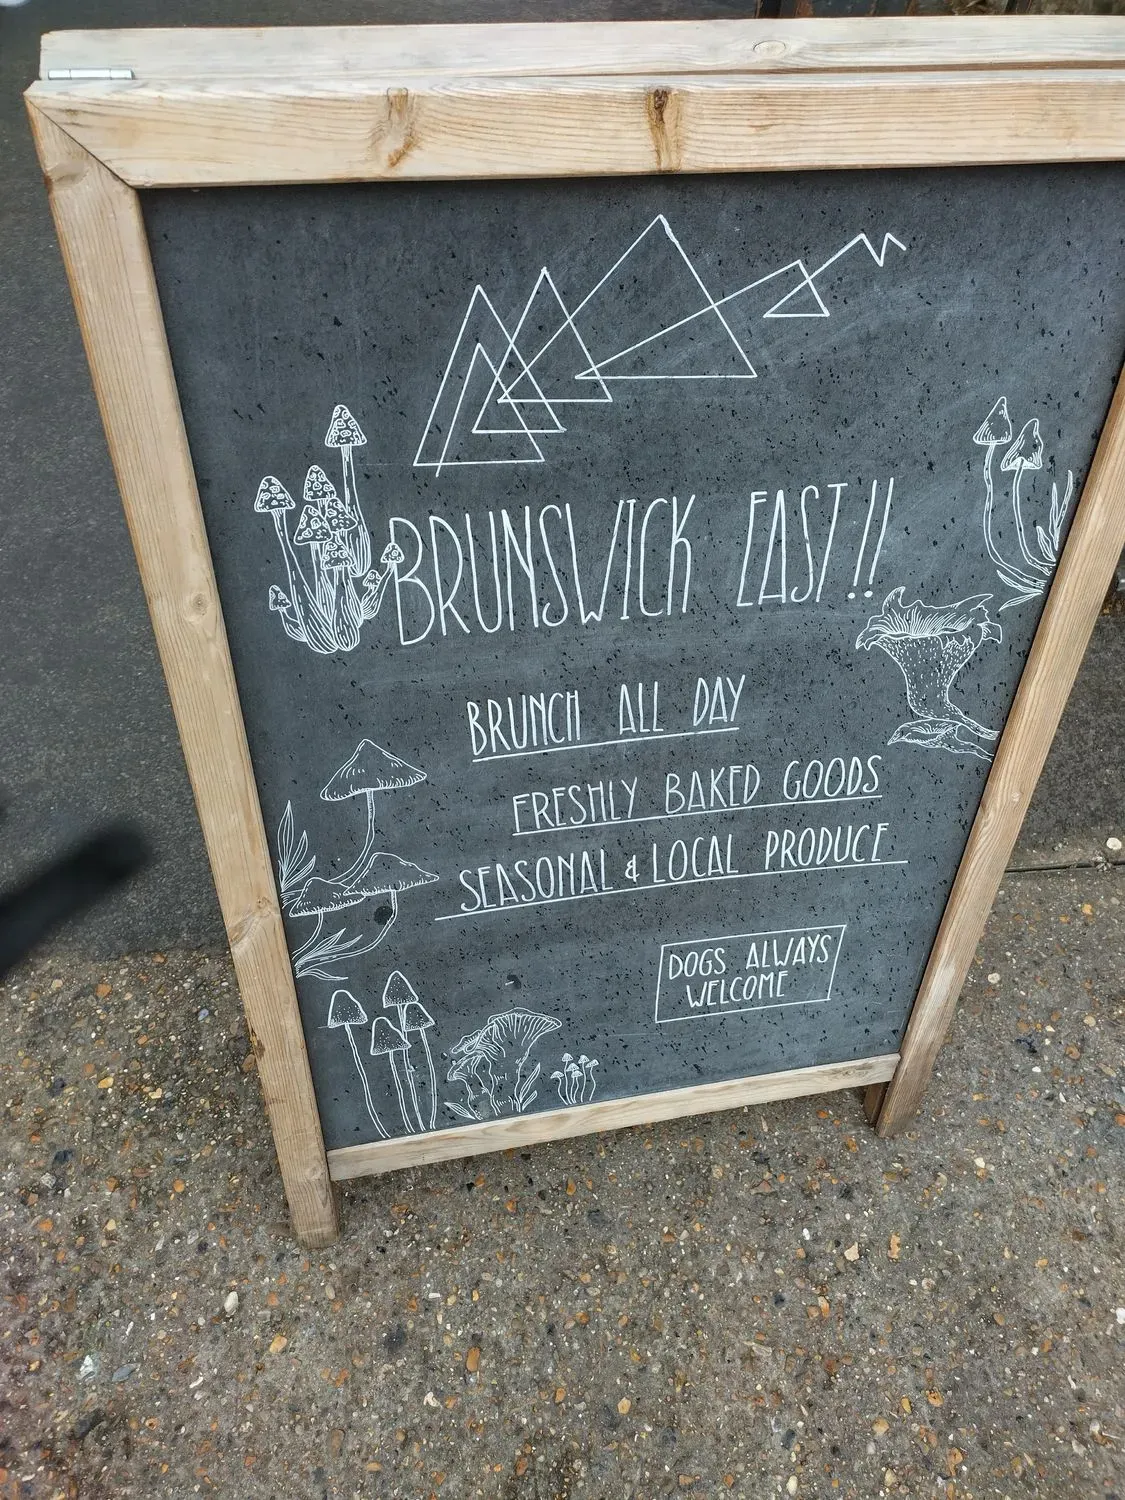 BRUNSWICK EAST!!
BRUNCH ALL DAY
FRESHLY BAKED GOODS
SEASONAL & LOCAL PRODUCE
DOGS ALWAYS
WELCOME